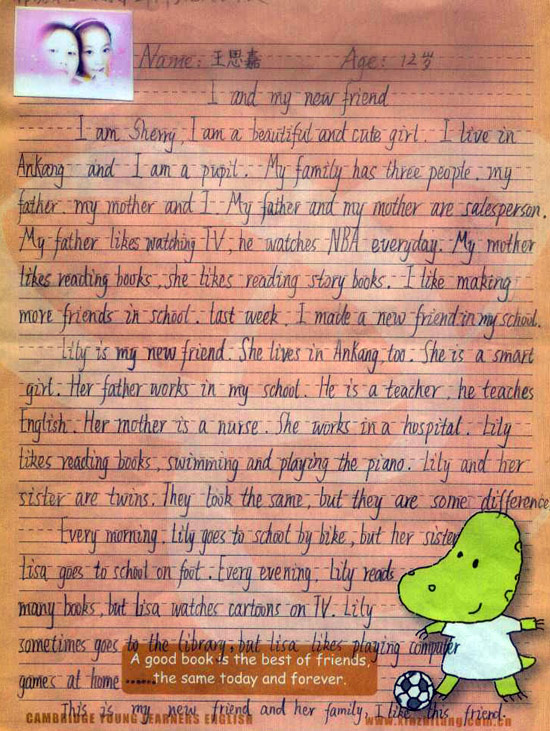 Name: 王思嘉 Age: 12岁
I and my new friend
I am Sherry, I am a beautiful and cute girl. I live in
Ankang and I am a pupil. My family has three people, my
father, my mother and I. My father and my mother are salesperson.
My father likes watching TV, he watches NBA everyday. My mother
likes reading books, she likes reading story books. I like making
more friends in school. last week, I made a new friend in my school.
Lily is my new friend. She lives in Ankang, too. She is a smart
girl. Her father works in my school. He is a teacher, he teaches
English. Her mother is a nurse. She works in a hospital. Lily
likes reading books, swimming and playing the piano. Lily and her
sister are twins. They look the same, but they are some difference
Every morning, Lily goes to school by bike, but her sister
Lisa goes to school on foot. Every evening, Lily reads
many books, but Lisa watches cartoons on TV. Lily
sometimes goes to the library, but Lisa likes playing computer
games at home ......
A good book is the best of friends,
the same today and forever.
This is my new friend and her family, I like this friend.
CAMBRIDGE YOUNG LEARNERS ENGLISH